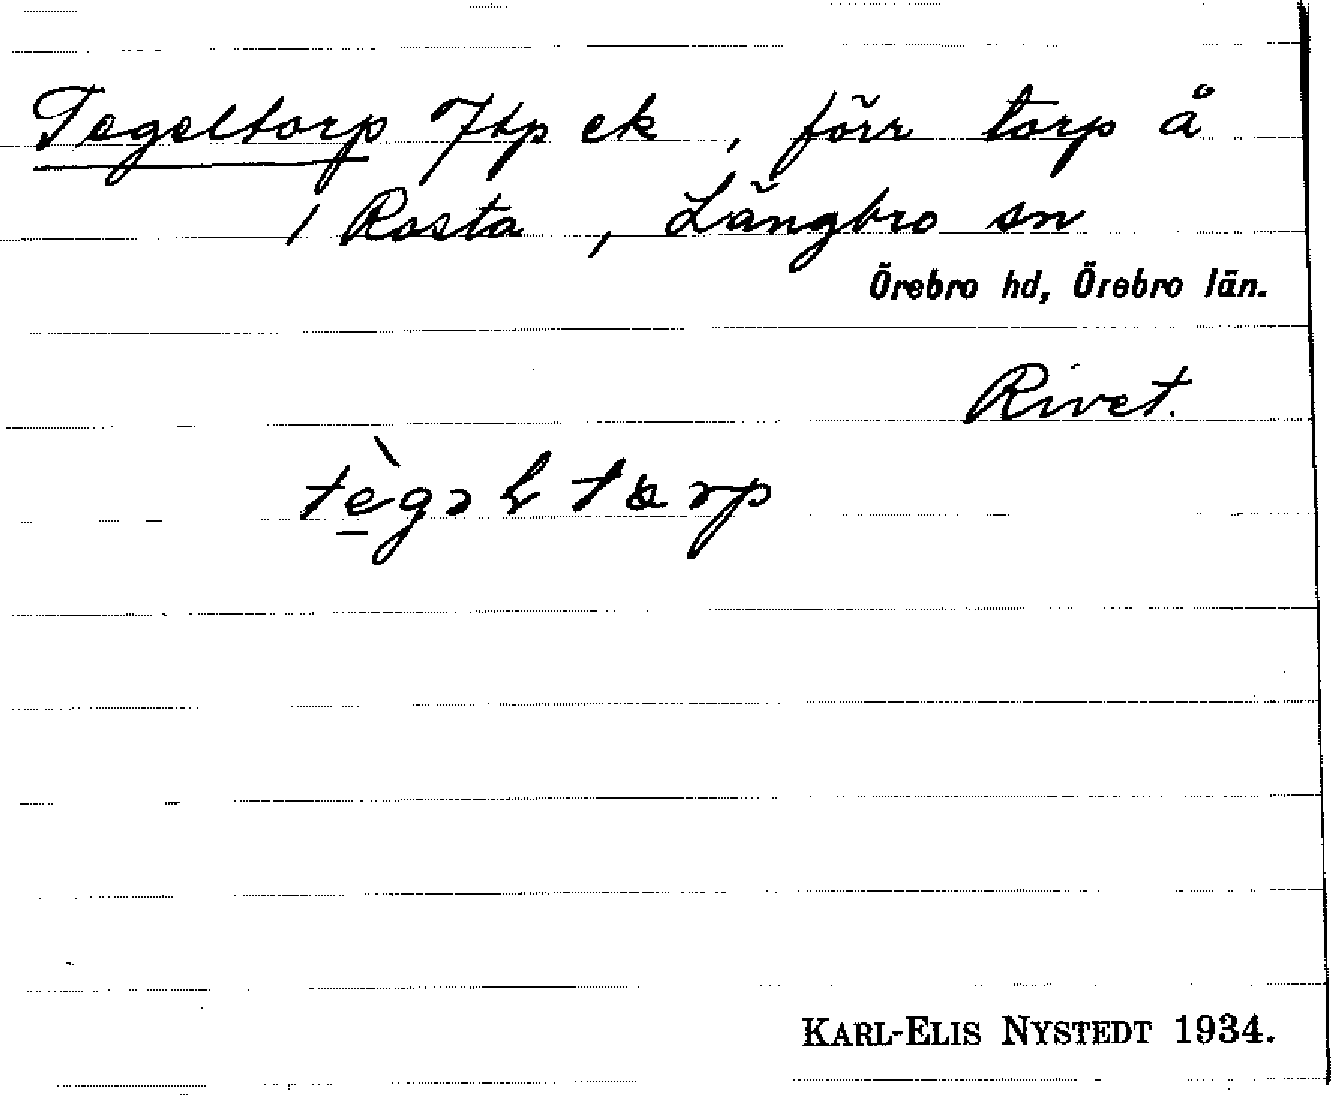 Tegeltorp 7tp ek, förr torp å
/ Rosta, Längbro sn
Örebro hd, Örebro län.
Rivet.
KARL-ELIS NYSTEDT 1934.